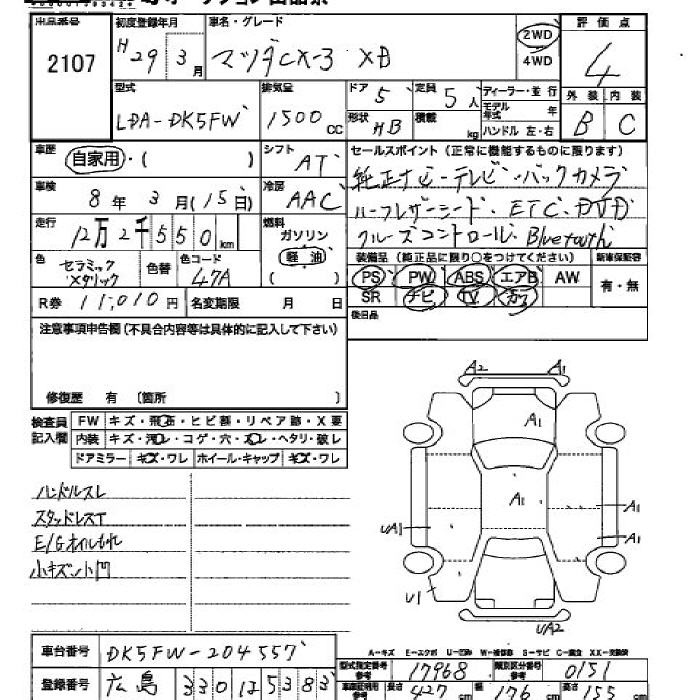 出品番号 初度登録年月 車名・グレード 2WD 評価点
2107 H29 3月 マツダCX-3 XD 4WD 4
型式 排気量 ドア 5 定員 5人 ディーラー・並行 外装 内装
LDA-DK5FW 1500cc 形状 HB 積載 kg モデル年式 年 B C
ハンドル 左・右
車歴 自家用・( ) シフト AT セールスポイント(正常に機能するものに限ります)
車検 8年 3月(15日) 冷房 AAC 純正ナビ・テレビ・バックカメラ
走行 12万2千550km 燃料 ガソリン ハーフレザーシード、ETC、DVD
軽油 ( ) クルーズコントロール、Bluetooth
色 セラミックメタリック 色替 色コード 47A 装備品(純正品に限り○をつけてください) 新車保証書
PS PW ABS エアB AW 有・無
R券 11,010円 名変期限 月 日 SR ナビ TV カワ
後日品
注意事項申告欄(不具合内容等は具体的に記入して下さい)
修復歴 有 〔箇所 〕
検査員記入欄 FW キズ・飛石・ヒビ割・リペア跡・X要
内装 キズ・汚レ・コゲ・穴・スレ・ヘタリ・破レ
ドアミラー キズ・ワレ ホイール・キャップ キズ・ワレ
ハンドルスレ
スタッドレスT
E/Gオイルもれ
小キズ凹
A2 A1
A1
A1
A1
UA1 A1
U1
UA2
A-キズ E-エクボ U-凹み W-補修跡 S-サビ C-腐食 XX-交換済
車台番号 DK5FW-204557
型式指定番号 参考 17968 類別区分番号 参考 0151
登録番号 広島 330 に5383
長さ 427cm 幅 176cm 高さ 155cm